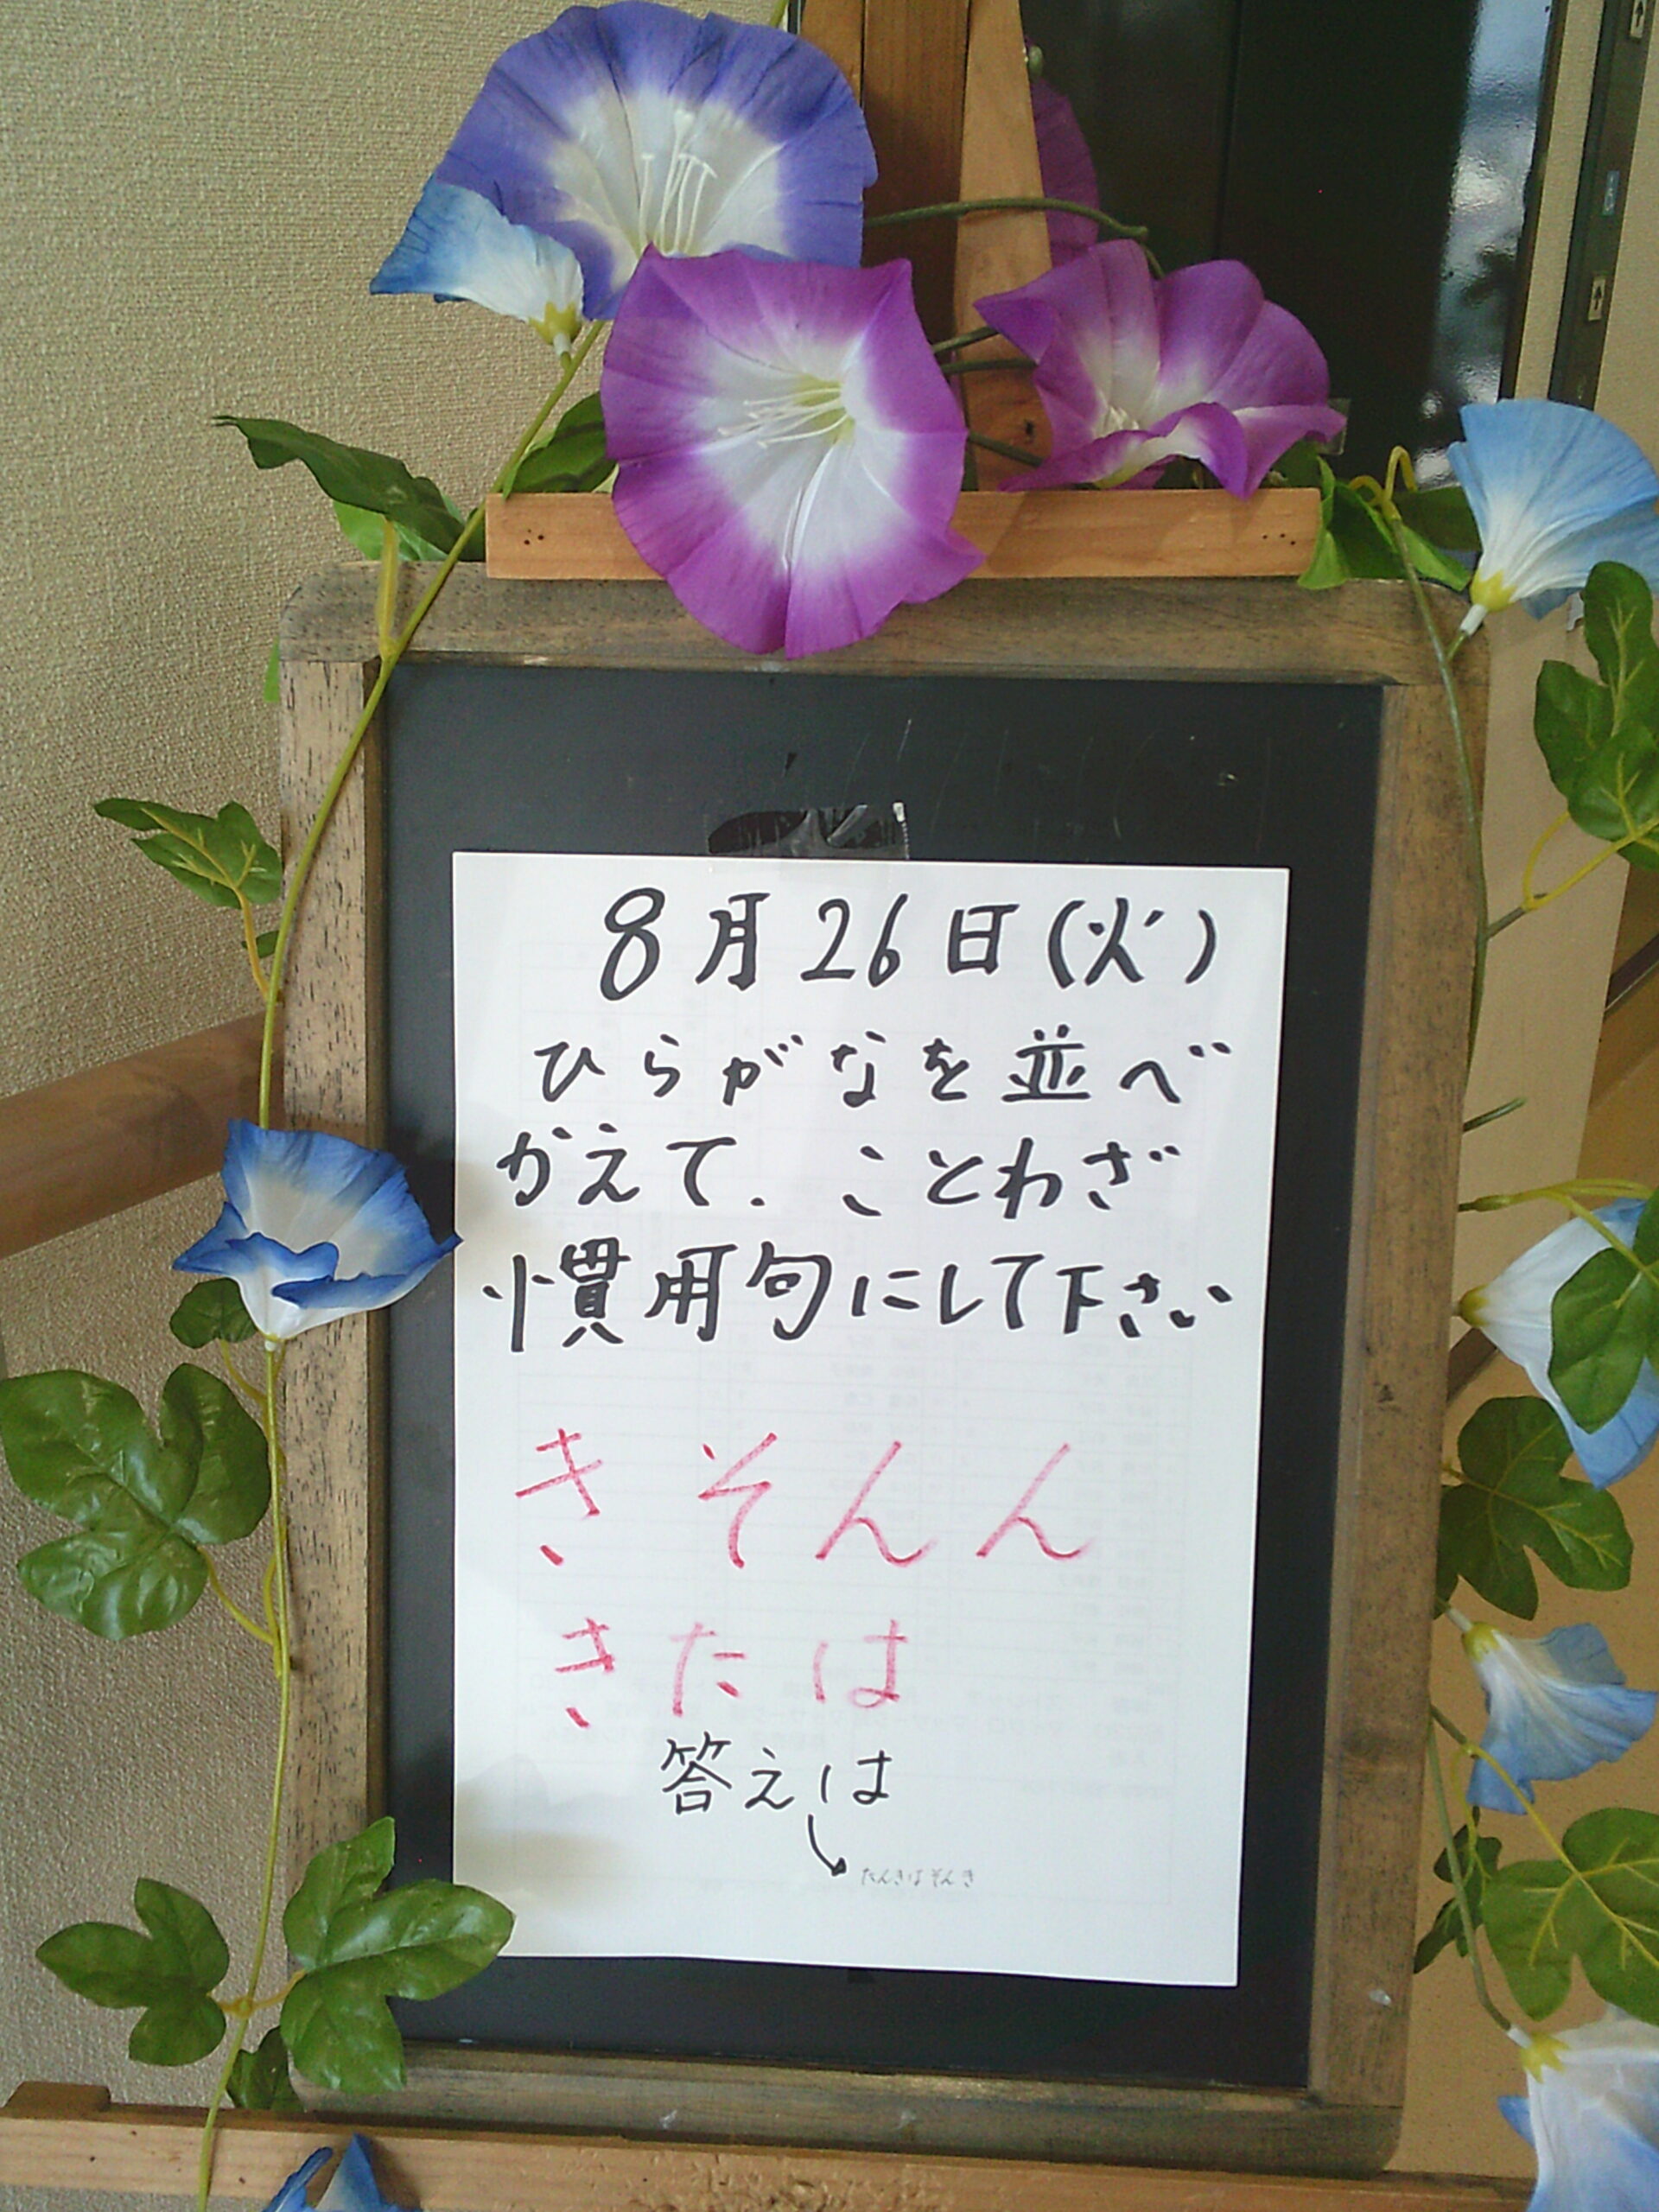 8月26日(火)
ひらがなを並べ
かえて、ことわざ
慣用句にして下さい
きそんん
きたは
答えは
たんきはそんき